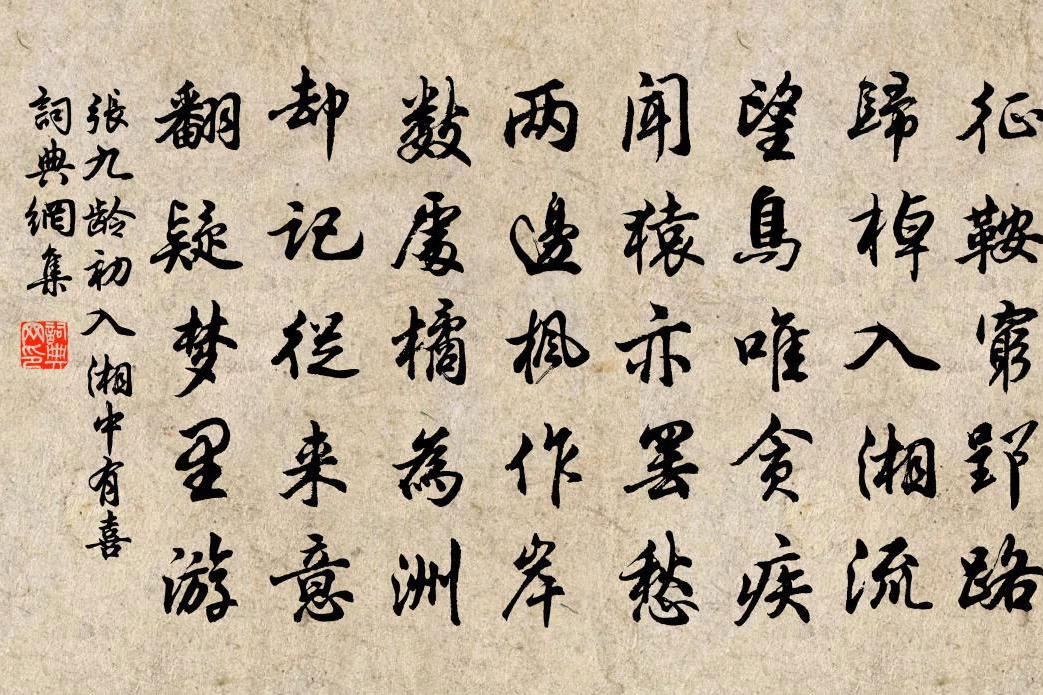 征鞍穷郢路
歸棹入湘流
望鳥唯贪疾
闻猿亦罢愁
两邊枫作岸
数處橘為洲
却记從来意
翻疑梦里游
張九龄初入湘中有喜
詞典網集
詞典网印